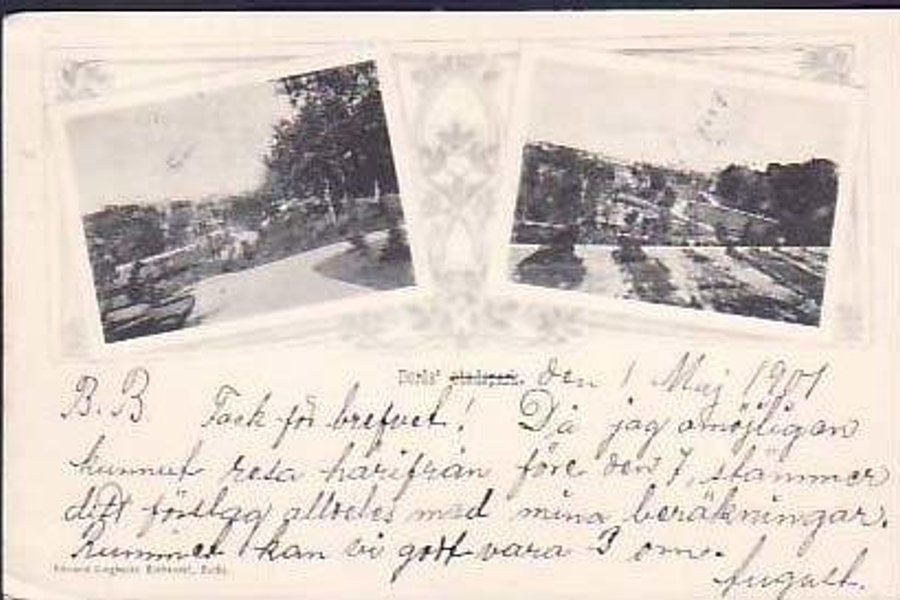 Borås' stadspark. den 1 Maj 1901
B. B Tack för brefvet! Då jag omöjligen
kunnat resa härifrån före den 7, stämmer
ditt förslag alldeles med mina beräkningar.
Rummet kan vi godt vara 3 om.